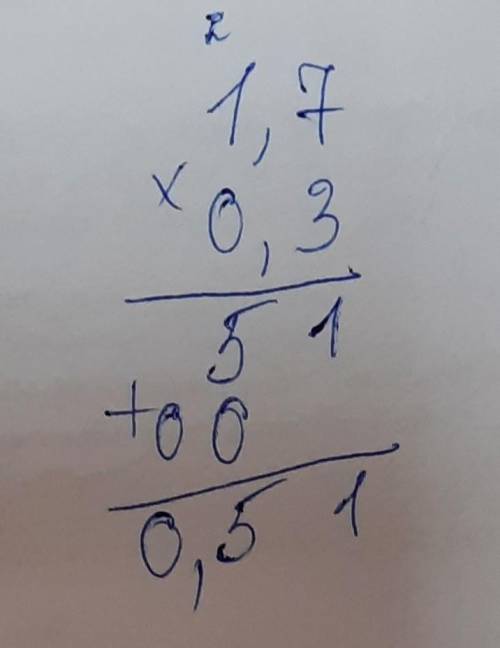 2
1,7
× 0,3
51
+00
0,51